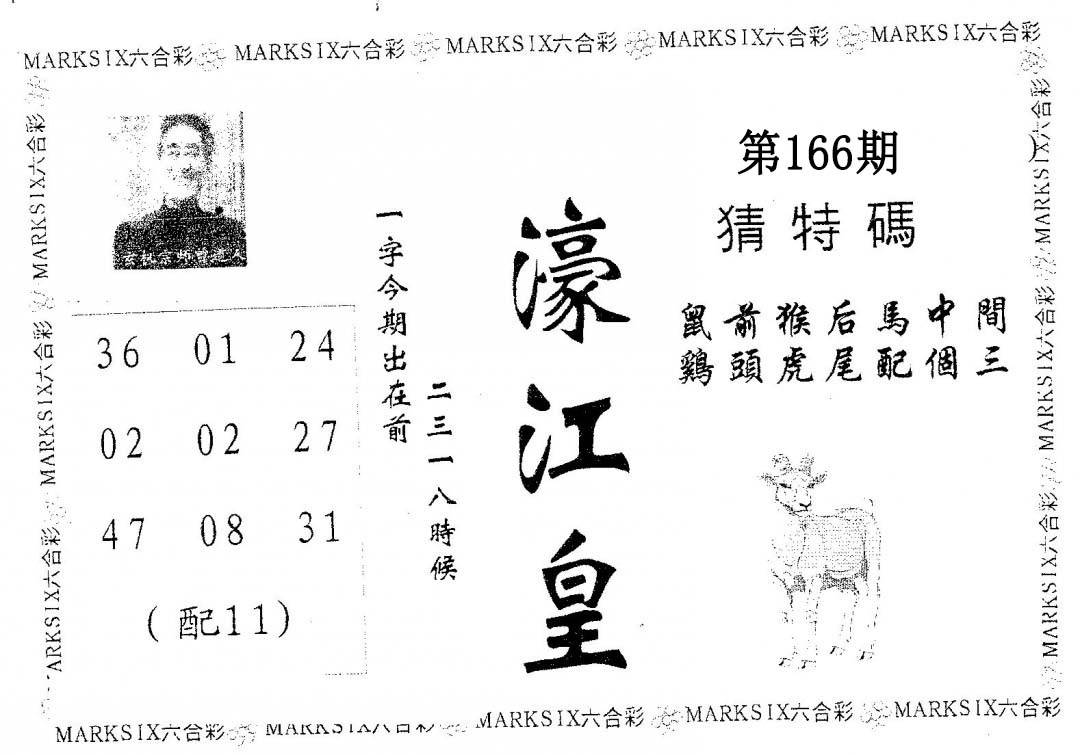 MARKSIX六合彩 MARKSIX六合彩 MARKSIX六合彩 MARKSIX六合彩 MARKSIX六合彩
MARKSIX六合彩 MARKSIX六合彩 ARKSIX六合彩
36 01 24
02 02 27
47 08 31
(配11)
一字今期出在前
二三一八時候
濠江皇
第166期
猜特碼
鼠前猴后馬中間
鷄頭虎尾配個三
MARKSIX六合彩 MARKSIX六合彩 MARKSIX六合彩
MARKSIX六合彩 MARKSIX六合彩 MARKSIX六合彩 MARKSIX六合彩 MARKSIX六合彩